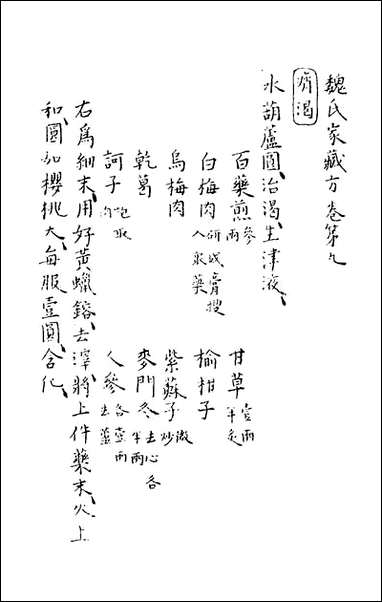 魏氏家藏方卷第九
消渴
水葫蘆圓治渴生津液
百藥煎 參兩 甘草 壹兩半炙
白梅肉 研成膏搜入衆藥 榆柑子
烏梅肉 紫蘇子 微炒
乾葛 麥門冬 去心各半兩
訶子 炮取肉 人參 去蘆各壹兩
右爲細末用好黃蠟鎔去滓將上件藥末火上
和圓如櫻桃大每服壹圓含化